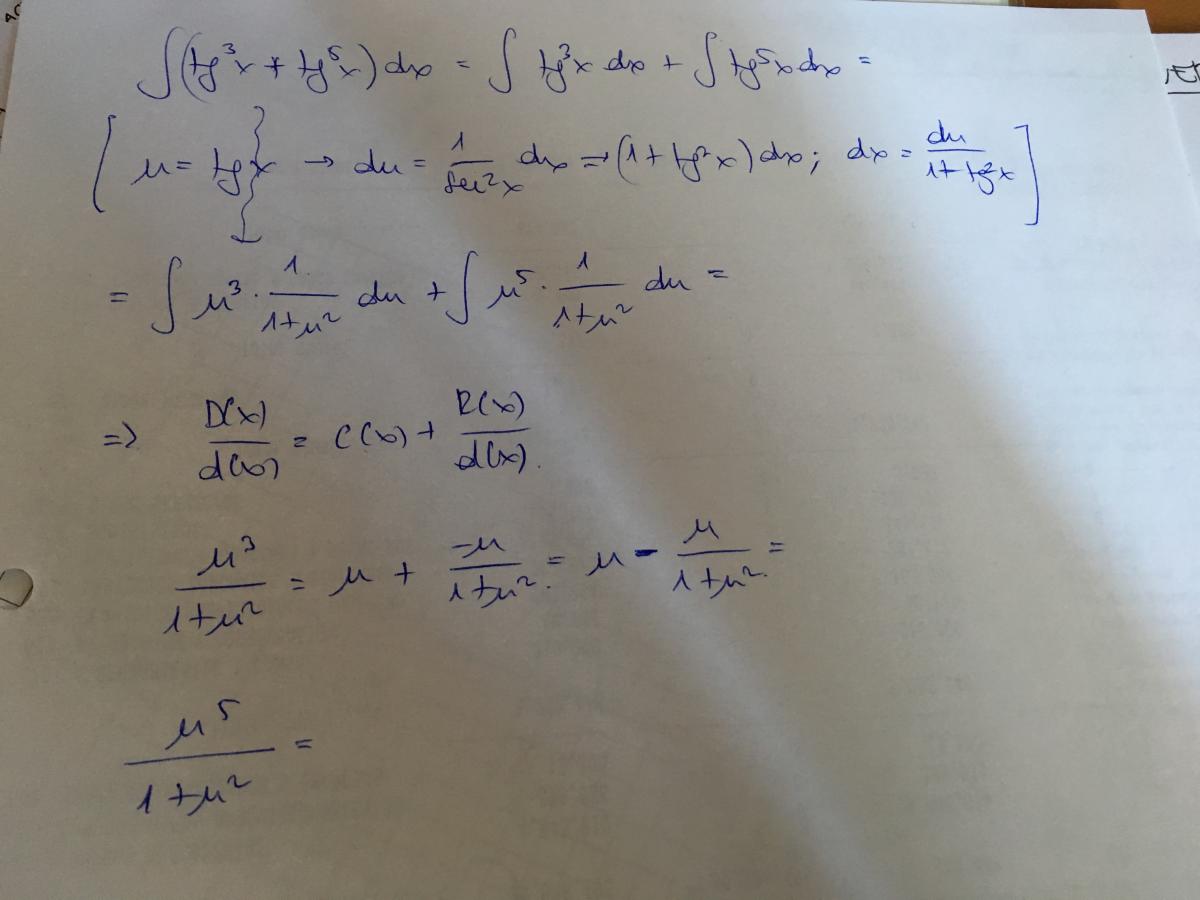 ∫(tg³x + tg⁵x) dx = ∫ tg³x dx + ∫ tg⁵x dx =
[ u = tg x → du = 1/sec²x dx = (1 + tg²x) dx; dx = du/(1 + tg²x) ]
= ∫ u³ · 1/(1+u²) du + ∫ u⁵ · 1/(1+u²) du =
=> D(x)/d(x) = C(x) + R(x)/d(x).
u³/(1+u²) = u + -u/(1+u²) = u - u/(1+u²) =
u⁵/(1+u²) =